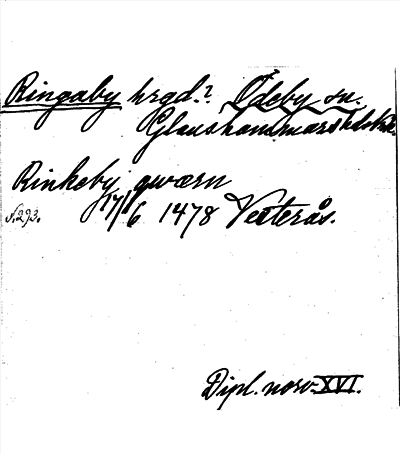 Ringaby hrgd.? Ödeby sn.
Glanshammars hds
Rinkeby qwærn
s. 293. 17/6 1478 Vesterås.
Dipl. norv. XVI.